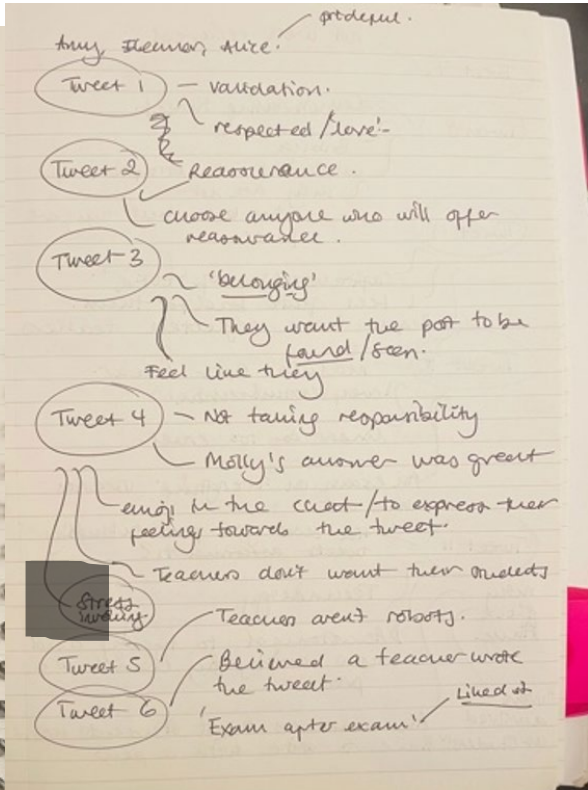 Amy, Eleanor, Alice.
Tweet 1 - validation.
respected / 'love' -
Tweet 2 Reassurance.
choose anyone who will offer
reassurance.
Tweet 3
'belonging'
They want the post to be
found / seen.
Feel like they
Tweet 4 - Not taking responsibility
Molly's answer was great
emoji in the chat / to express their
feelings towards the tweet.
Teachers don't want their students
Stress
Teachers aren't robots.
Tweet 5
Believed a teacher wrote
the tweet.
Linked it
Tweet 6
'Exam after exam'